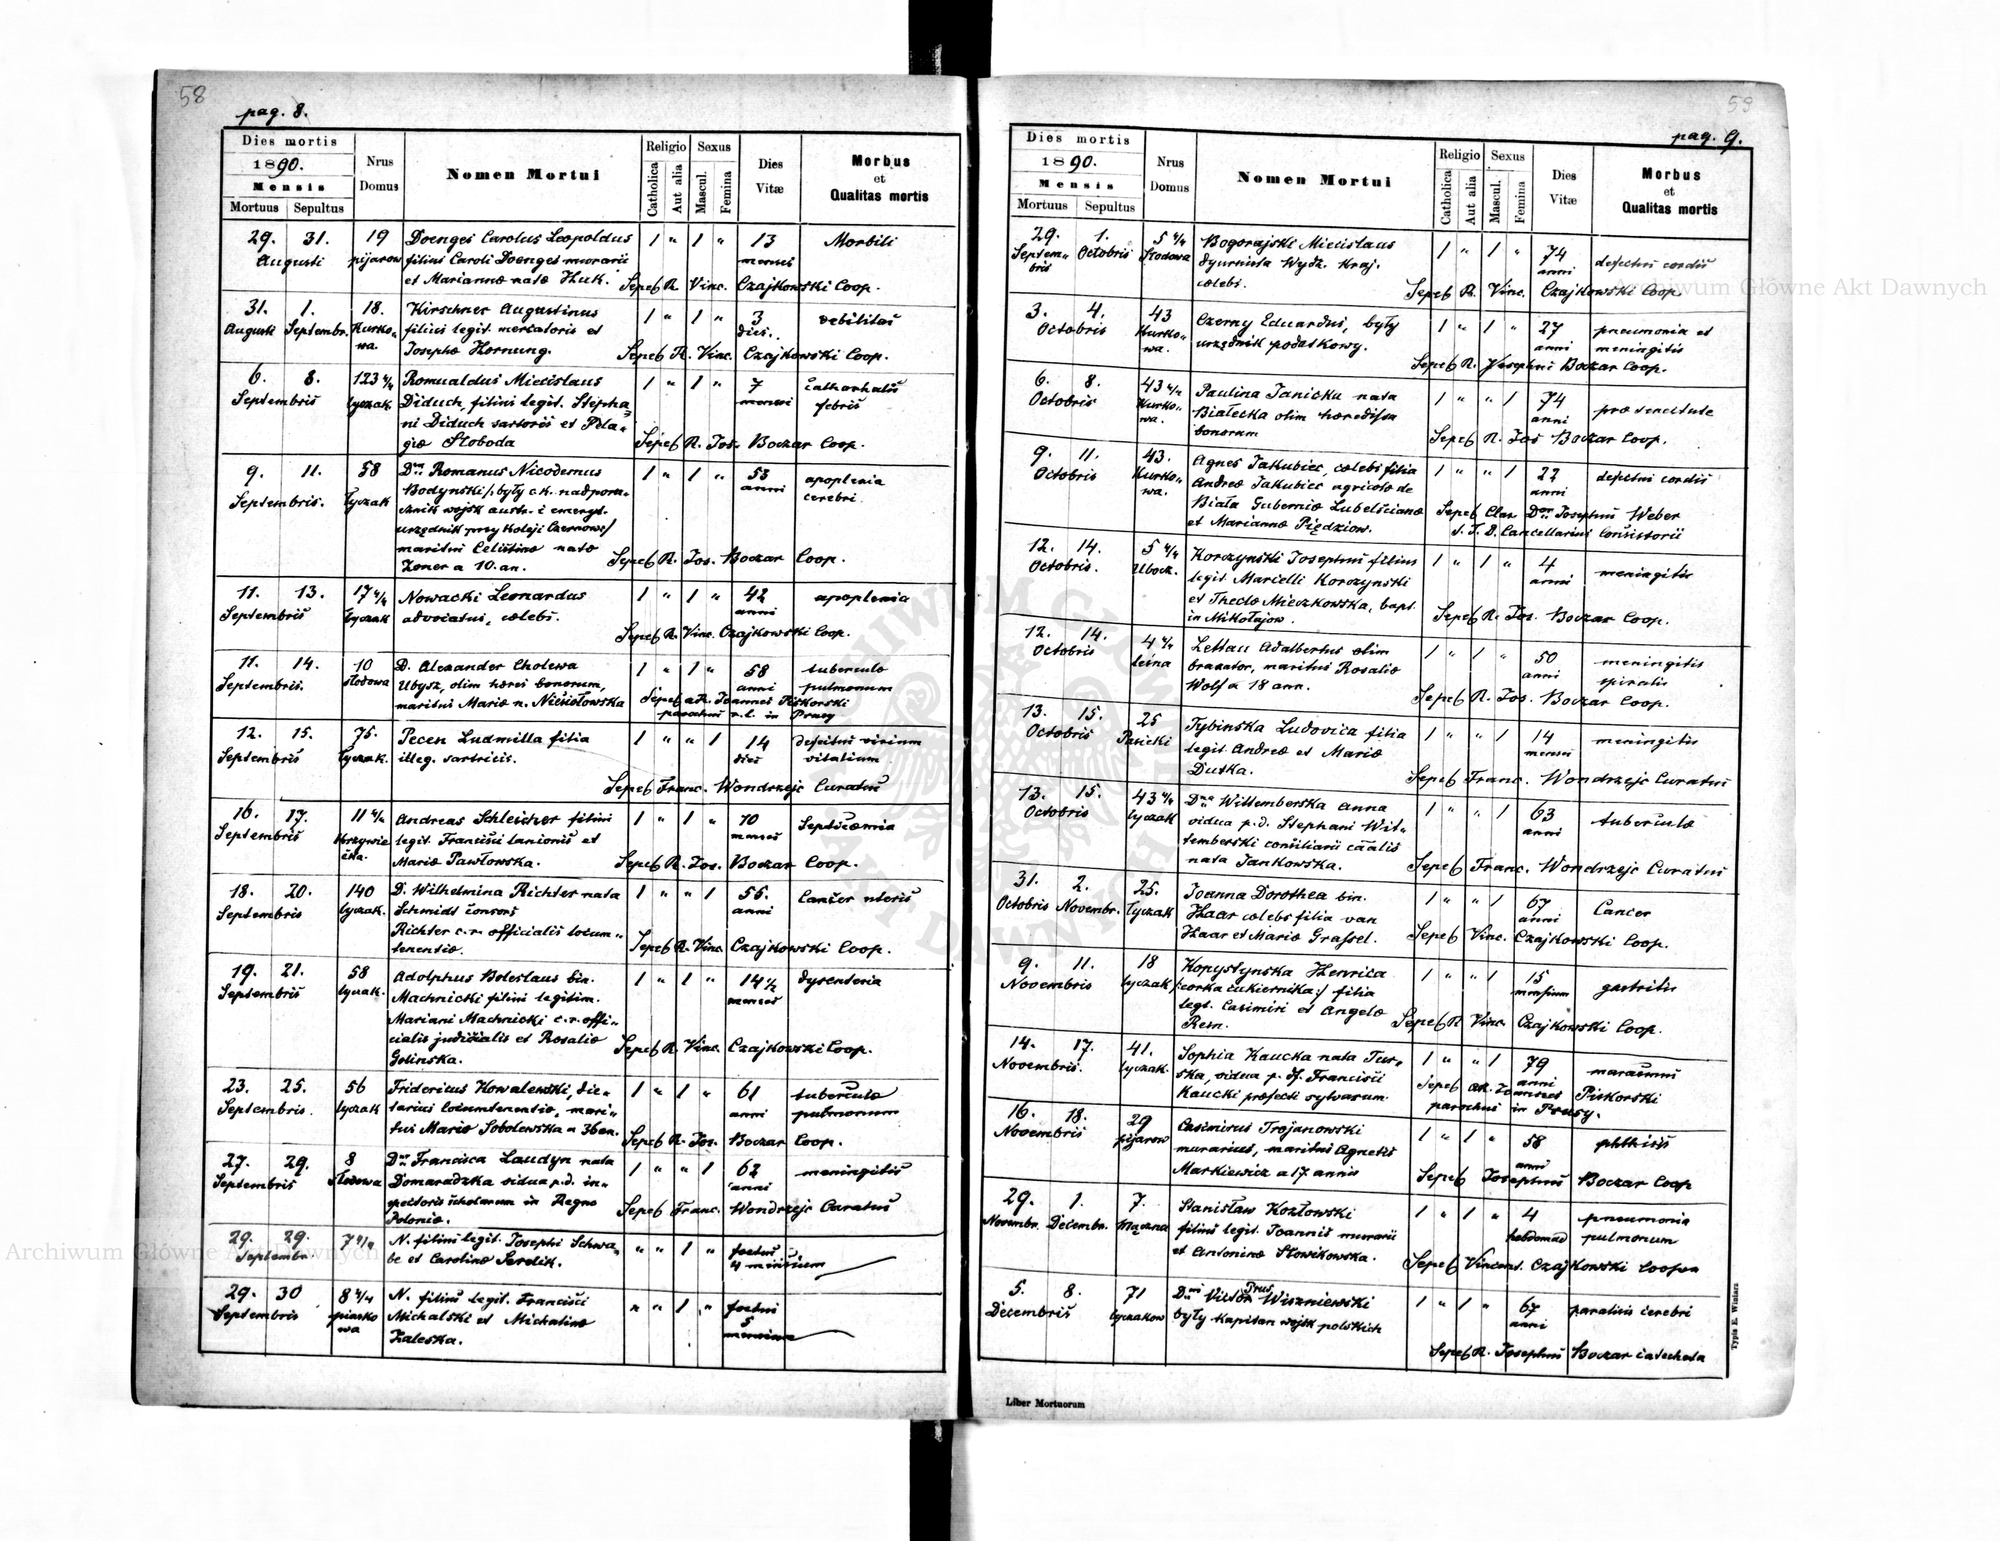 58
pag. 8.
Dies mortis
1890.
Mensis
Mortuus Sepultus
Nrus Domus
Nomen Mortui
Religio
Catholica
Aut alia
Sexus
Mascul.
Femina
Dies Vitæ
Morbus
et
Qualitas mortis
29. 31. 19 Doenges Carolus Leopoldus 1 " 1 " 13 Morbili
Augusti pijarow filius Caroli Doenges murarii menses
et Mariannæ natæ Huk. Sepel R. Vinc. Czajkowski Coop.
31. 1. 18. Kirschner Augustinus 1 " 1 " 3 debilitas
Augusti Septembr. Kurko- filius legit. mercatoris et dies.
wa. Josephæ Hornung. Sepel R. Vinc. Czajkowski Coop.
6. 8. 123 4/4 Romualdus Miecislaus 1 " 1 " 7
Septembris Łyczak. Diduch, filius legit. Stepha- febris
ni Diduch sartoris et Pela-
giæ Słoboda Sepel R. Jos. Boczar Coop.
9. 11. 58 Romanus Nicodemus 1 " 1 " 53 apoplexia
Septembris. Łyczak Bodynski /: były c.k. nadporu- anni cerebri
cznik wojsk austr. i emeryt.
urzędnik przy Koleji Czernow:/
mariti Celestinæ natæ
Zoner a 10. an. Sepel R. Jos. Boczar Coop.
11. 13. 17 4/4 Nowacki Leonardus 1 " 1 " 42 apoplexia
Septembris Łyczak advocatus, cælebs. anni
Sepel R. Vinc. Czajkowski Coop.
11. 14. 10 D. Alexander Cholewa 1 " 1 " 58 tuberculo
Septembris. Słodowa Ubysz, olim hæres bonorum, anni pulmonum
maritus Mariæ n. Niesiołowska Sepel Joannes Piskorski
parochus r. l. in Prusy
12. 15. 75. Pecen Ludmilla filia 1 " " 1 14 defectus virium
Septembris Łyczak. illeg. sartricis. dies vitalium
Sepel Franc. Wondrzejc Curatus
16. 17. 11 4/4 Andreas Schleicher filius 1 " 1 " 10 Septicæmia
Septembris legit. Francisci lanionis et menses
Mariæ Pawłowska. Sepel R. Jos. Boczar Coop.
18. 20. 140 D. Wilhelmina Richter nata 1 " " 1 56. Cancer uteris
Septembris Łyczak. Schmidt consors anni
Richter c.r. officialis locum-
tenentiæ. Sepel R. Vinc. Czajkowski Coop.
19. 21. 58 Adolphus Boleslaus bin. 1 " 1 " 14 1/2 dysenteria
Septembris Łyczak. Machnicki filius legitim. menses
Mariani Machnicki c.r. offi-
cialis judicialis et Rosaliæ Sepel R. Vinc. Czajkowski Coop.
Golinska.
23. 25. 56 Fridericus Kowalewski, die- 1 " 1 " 61 tuberculo
Septembris. Łyczak tarius locumtenentiæ, mari- anni pulmonum
tus Mariæ Sobolewska a 36 an. Sepel R. Jos. Boczar Coop.
27. 29. 8 Francisca Laudyn nata 1 " " 1 62 meningitis
Septembris Słodowa Domaradzka vidua p.d. in- anni
spectoris scholarum in Regno Sepel Franc. Wondrzejc Curatus
Poloniæ.
29. 29. 7 4/4 N. filius legit. Josephi Schwa- " " 1 " foetus
Septembr. be et Carolinæ Serdik. 4 mensium
29. 30 8 4/4 N. filius legit. Francisci " " 1 " foetus
Septembris piasko Michalski et Michalinæ 5
wa Zaleska. mensium
59
pag. 9.
Dies mortis
1890.
Mensis
Mortuus Sepultus
Nrus Domus
Nomen Mortui
Religio
Catholica
Aut alia
Sexus
Mascul.
Femina
Dies Vitæ
Morbus
et
Qualitas mortis
29. 1. 5 4/4 Bogorajski Miecislaus 1 " 1 " 74 defectus cordis
Septem- Octobris Słodowa dyurnista Wydz. Kraj. anni
bris cælebs. Sepel R. Vinc. Czajkowski Coop.
3. 4. 43 Czerny Eduardus, były 1 " 1 " 27 pneumonia et
Octobris Kurko- urzędnik podatkowy. anni meningitis
wa. Sepel R. Josephus Boczar Coop.
6. 8. 43 4/4 Paulina Janicka nata 1 " " 1 74 præ senectute
Octobris Kurko- Białecka olim hæredissa anni
wa. bonorum Sepel R. Jos Boczar Coop.
9. 11. 43. Agnes Jakubiec, cælebs filia 1 " " 1 22 defectus cordis
Octobris Kurko- Andreæ Jakubiec agricolæ de anni
wa. Biała Guberniæ Lubelscianæ Sepel Josephus Weber
et Mariannæ Piędziow. S. T. D. Cancellarius Consistorii
12. 14. 5 4/4 Korczynski Josephus filius 1 " 1 " 4 meningitis
Octobris. Ubocz. legit. Marcelli Korczynski anni
et Theclæ Mieczkowska, bapt.
in Mikołajow. Sepel R. Jos. Boczar Coop.
12. 14. 4 4/4 Lettau Adalbertus olim 1 " 1 " 50 meningitis
Octobris leśna braxator, maritus Rosaliæ anni
Wolf a 18 ann. Sepel R. Jos. Boczar Coop.
13. 15. 25 Tybinska Ludovica filia 1 " " 1 14 meningitis
Octobris Pasieki legit. Andreæ et Mariæ menses
Dutka. Sepel Franc. Wondrzejc Curatus
13. 15. 43 4/4 Wittemberska Anna 1 " " 1 63 tuberculo
Octobris Łyczak vidua p.d. Stephani Wit- anni
temberski consiliarii
nata Jankowska. Sepel Franc. Wondrzejc Curatus
31. 2. 25. Joanna Dorothea bin. 1 " " 1 67 Cancer
Octobris Novembr. Łyczak Haar cælebs filia van anni
Haar et Mariæ Grassel. Sepel Vinc. Czajkowski Coop.
9. 11. 18 Kopystynska Henrica 1 " " 1 15 gastritis
Novembris Łyczak /:corka cukiernika:/ filia mensium
legt. Casimiri et Angelæ
Rem. Sepel R Vinc. Czajkowski Coop.
14. 17. 41. Sophia Kaucka nata Tur- 1 " " 1 79 marasmus
Novembris. Łyczak. ska, vidua p. d. Francisci anni
Kaucki præfecti sylvarum. Sepel Piskorski
parochus in Prusy.
16. 18. 29 Casimirus Trojanowski 1 " 1 " 58 phthisis
Novembris pijarow murarius, maritus Agnetis anni
Markiewicz a 17 annis Sepel Josephus Boczar Coop
29. 1. 7. Stanisław Kozłowski 1 " 1 " 4 pneumonia
Novembr. Decembr. Mączna filius legit. Joannis murarii hebdomad pulmonum
et Antoninæ Słowikowska. Sepel Vincent. Czajkowski Coopera
5. 8. 71 Victor Prus Wiszniewski 1 " 1 " 67 paralisis cerebri
Decembris Łyczakow były kapitan wojsk polskich anni
Sepel R. Josephus Boczar catecheta
Typis E. Winiarz
Liber Mortuorum
Archiwum Główne Akt Dawnych
Archiwum Główne Akt Dawnych
ARCHIWUM GŁÓWNE AKT DAWNYCH